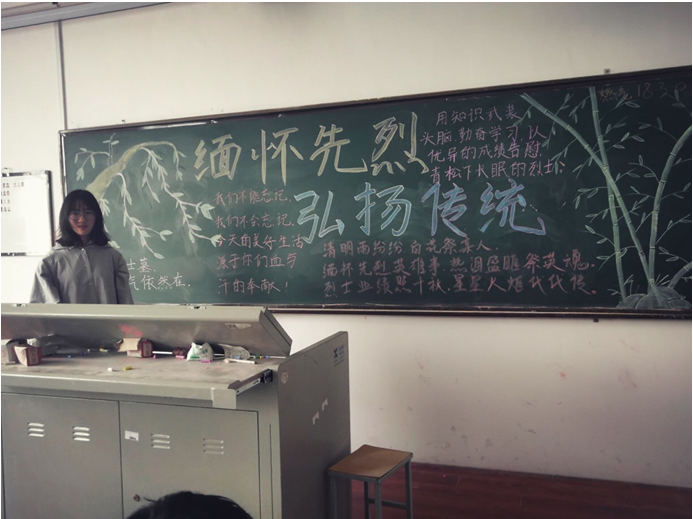 缅怀先烈
弘扬传统
用知识武装
头脑,勤奋学习,以
优异的成绩告慰
青松下长眠的烈士.
我们不能忘记,
我们不会忘记,
今天的美好生活
源于你们血与
汗的奉献!
士墓
气依然在.
清明雨纷纷 百花祭英人.
缅怀先烈英雄事,热泪盈眶祭英魂.
烈士业绩照千秋,